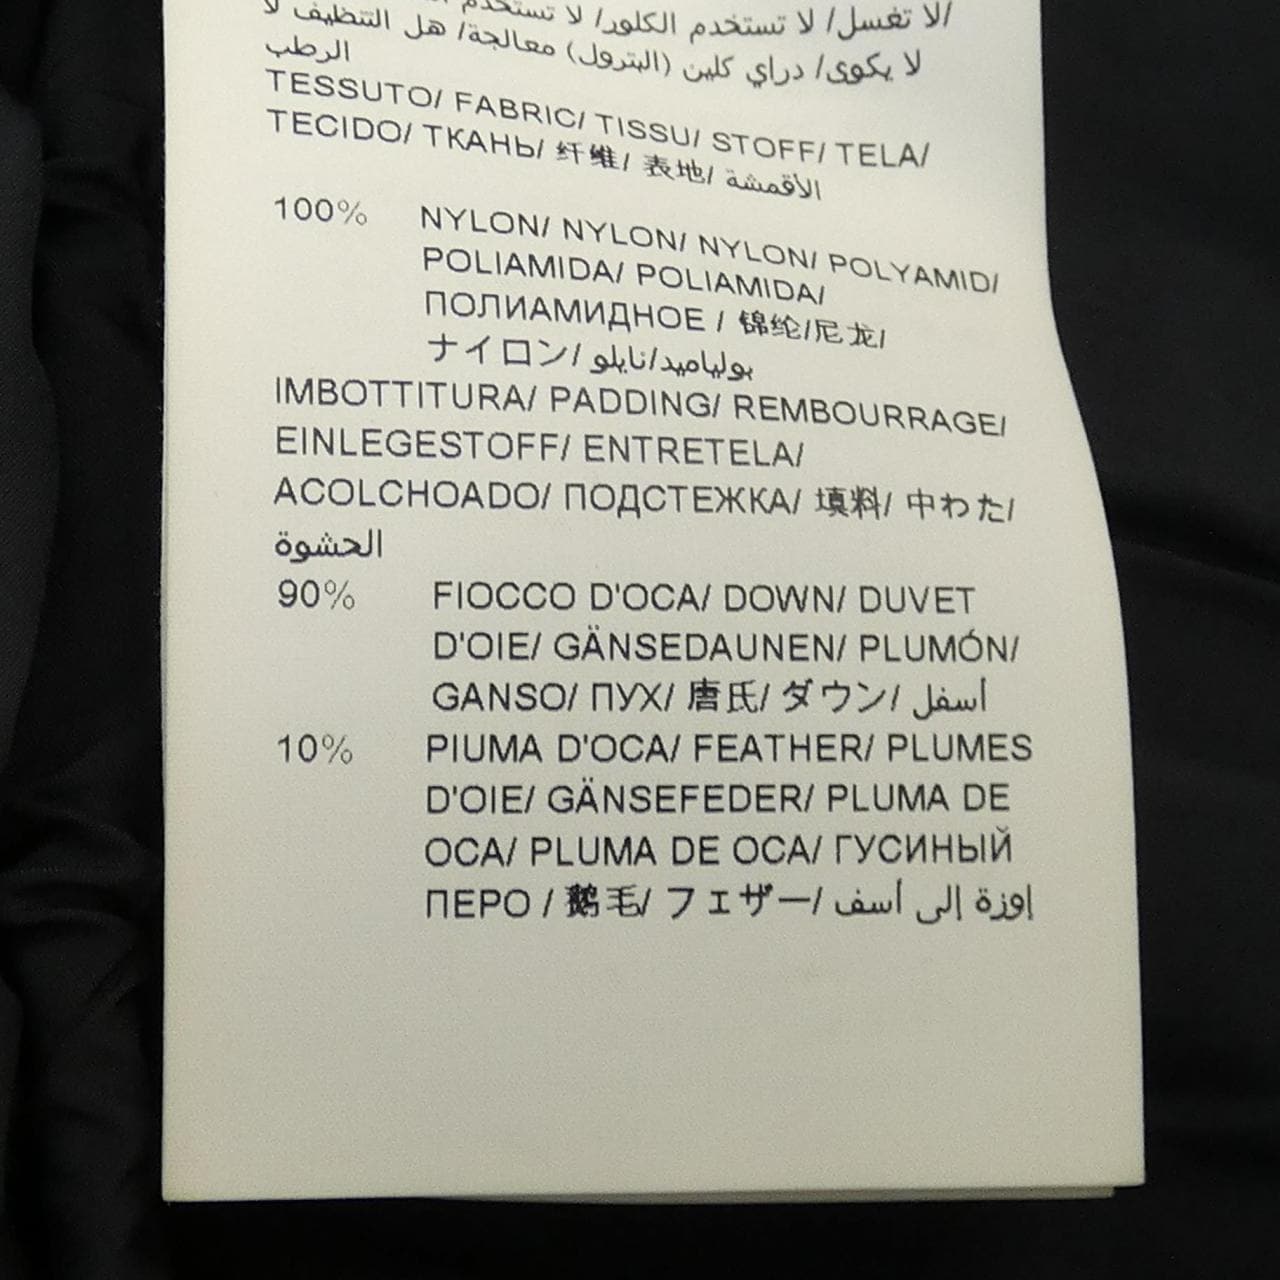 لا تغسل/ لا تستخدم الكلور/ لا تستخدم
لا يكوى/ دراي كلين (البترول) معالجة/ هل التنظيف لا
الرطب
TESSUTO/ FABRIC/ TISSU/ STOFF/ TELA/
TECIDO/ ТКАНЬ/ 纤维/ 表地/ الأقمشة
100% NYLON/ NYLON/ NYLON/ POLYAMID/
POLIAMIDA/ POLIAMIDA/
ПОЛИАМИДНОЕ / 锦纶/尼龙/
ナイロン/ بولياميد/نايلو
IMBOTTITURA/ PADDING/ REMBOURRAGE/
EINLEGESTOFF/ ENTRETELA/
ACOLCHOADO/ ПОДСТЕЖКА/ 填料/ 中わた/
الحشوة
90% FIOCCO D'OCA/ DOWN/ DUVET
D'OIE/ GÄNSEDAUNEN/ PLUMÓN/
GANSO/ ПУХ/ 唐氏/ ダウン/ أسفل
10% PIUMA D'OCA/ FEATHER/ PLUMES
D'OIE/ GÄNSEFEDER/ PLUMA DE
OCA/ PLUMA DE OCA/ ГУСИНЫЙ
ПЕРО / 鹅毛/ フェザー/ إوزة إلى أسف